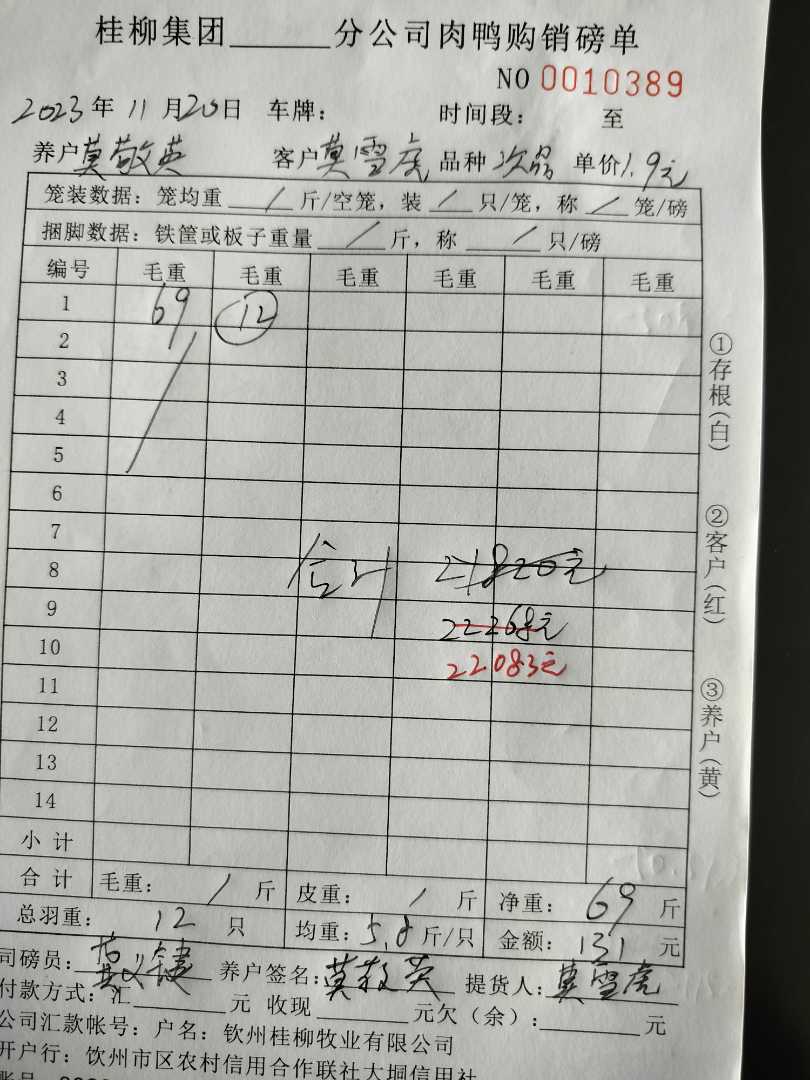 桂柳集团______分公司肉鸭购销磅单
NO 0010389
2023年11月20日 车牌： 时间段： 至
养户莫敬英 客户莫雪虎 品种 次品 单价1.9元
笼装数据：笼均重 / 斤/空笼，装 / 只/笼，称 / 笼/磅
捆脚数据：铁筐或板子重量 / 斤，称 / 只/磅
编号 毛重 毛重 毛重 毛重 毛重 毛重
1 69 12
2
3
4
5
6
7
8 合计 21820元
9 22268元
10 22083元
11
12
13
14
小计
合计 毛重： / 斤 皮重： / 斤 净重： 69 斤
总羽重： 12 只 均重：5.8斤/只 金额：131 元
司磅员： 养户签名：莫敬英 提货人：莫雪虎
付款方式：汇______元 收现______元欠（余）：______元
公司汇款帐号：户名：钦州桂柳牧业有限公司
开户行：钦州市区农村信用合作联社大垌信用社
①存根（白） ②客户（红） ③养户（黄）